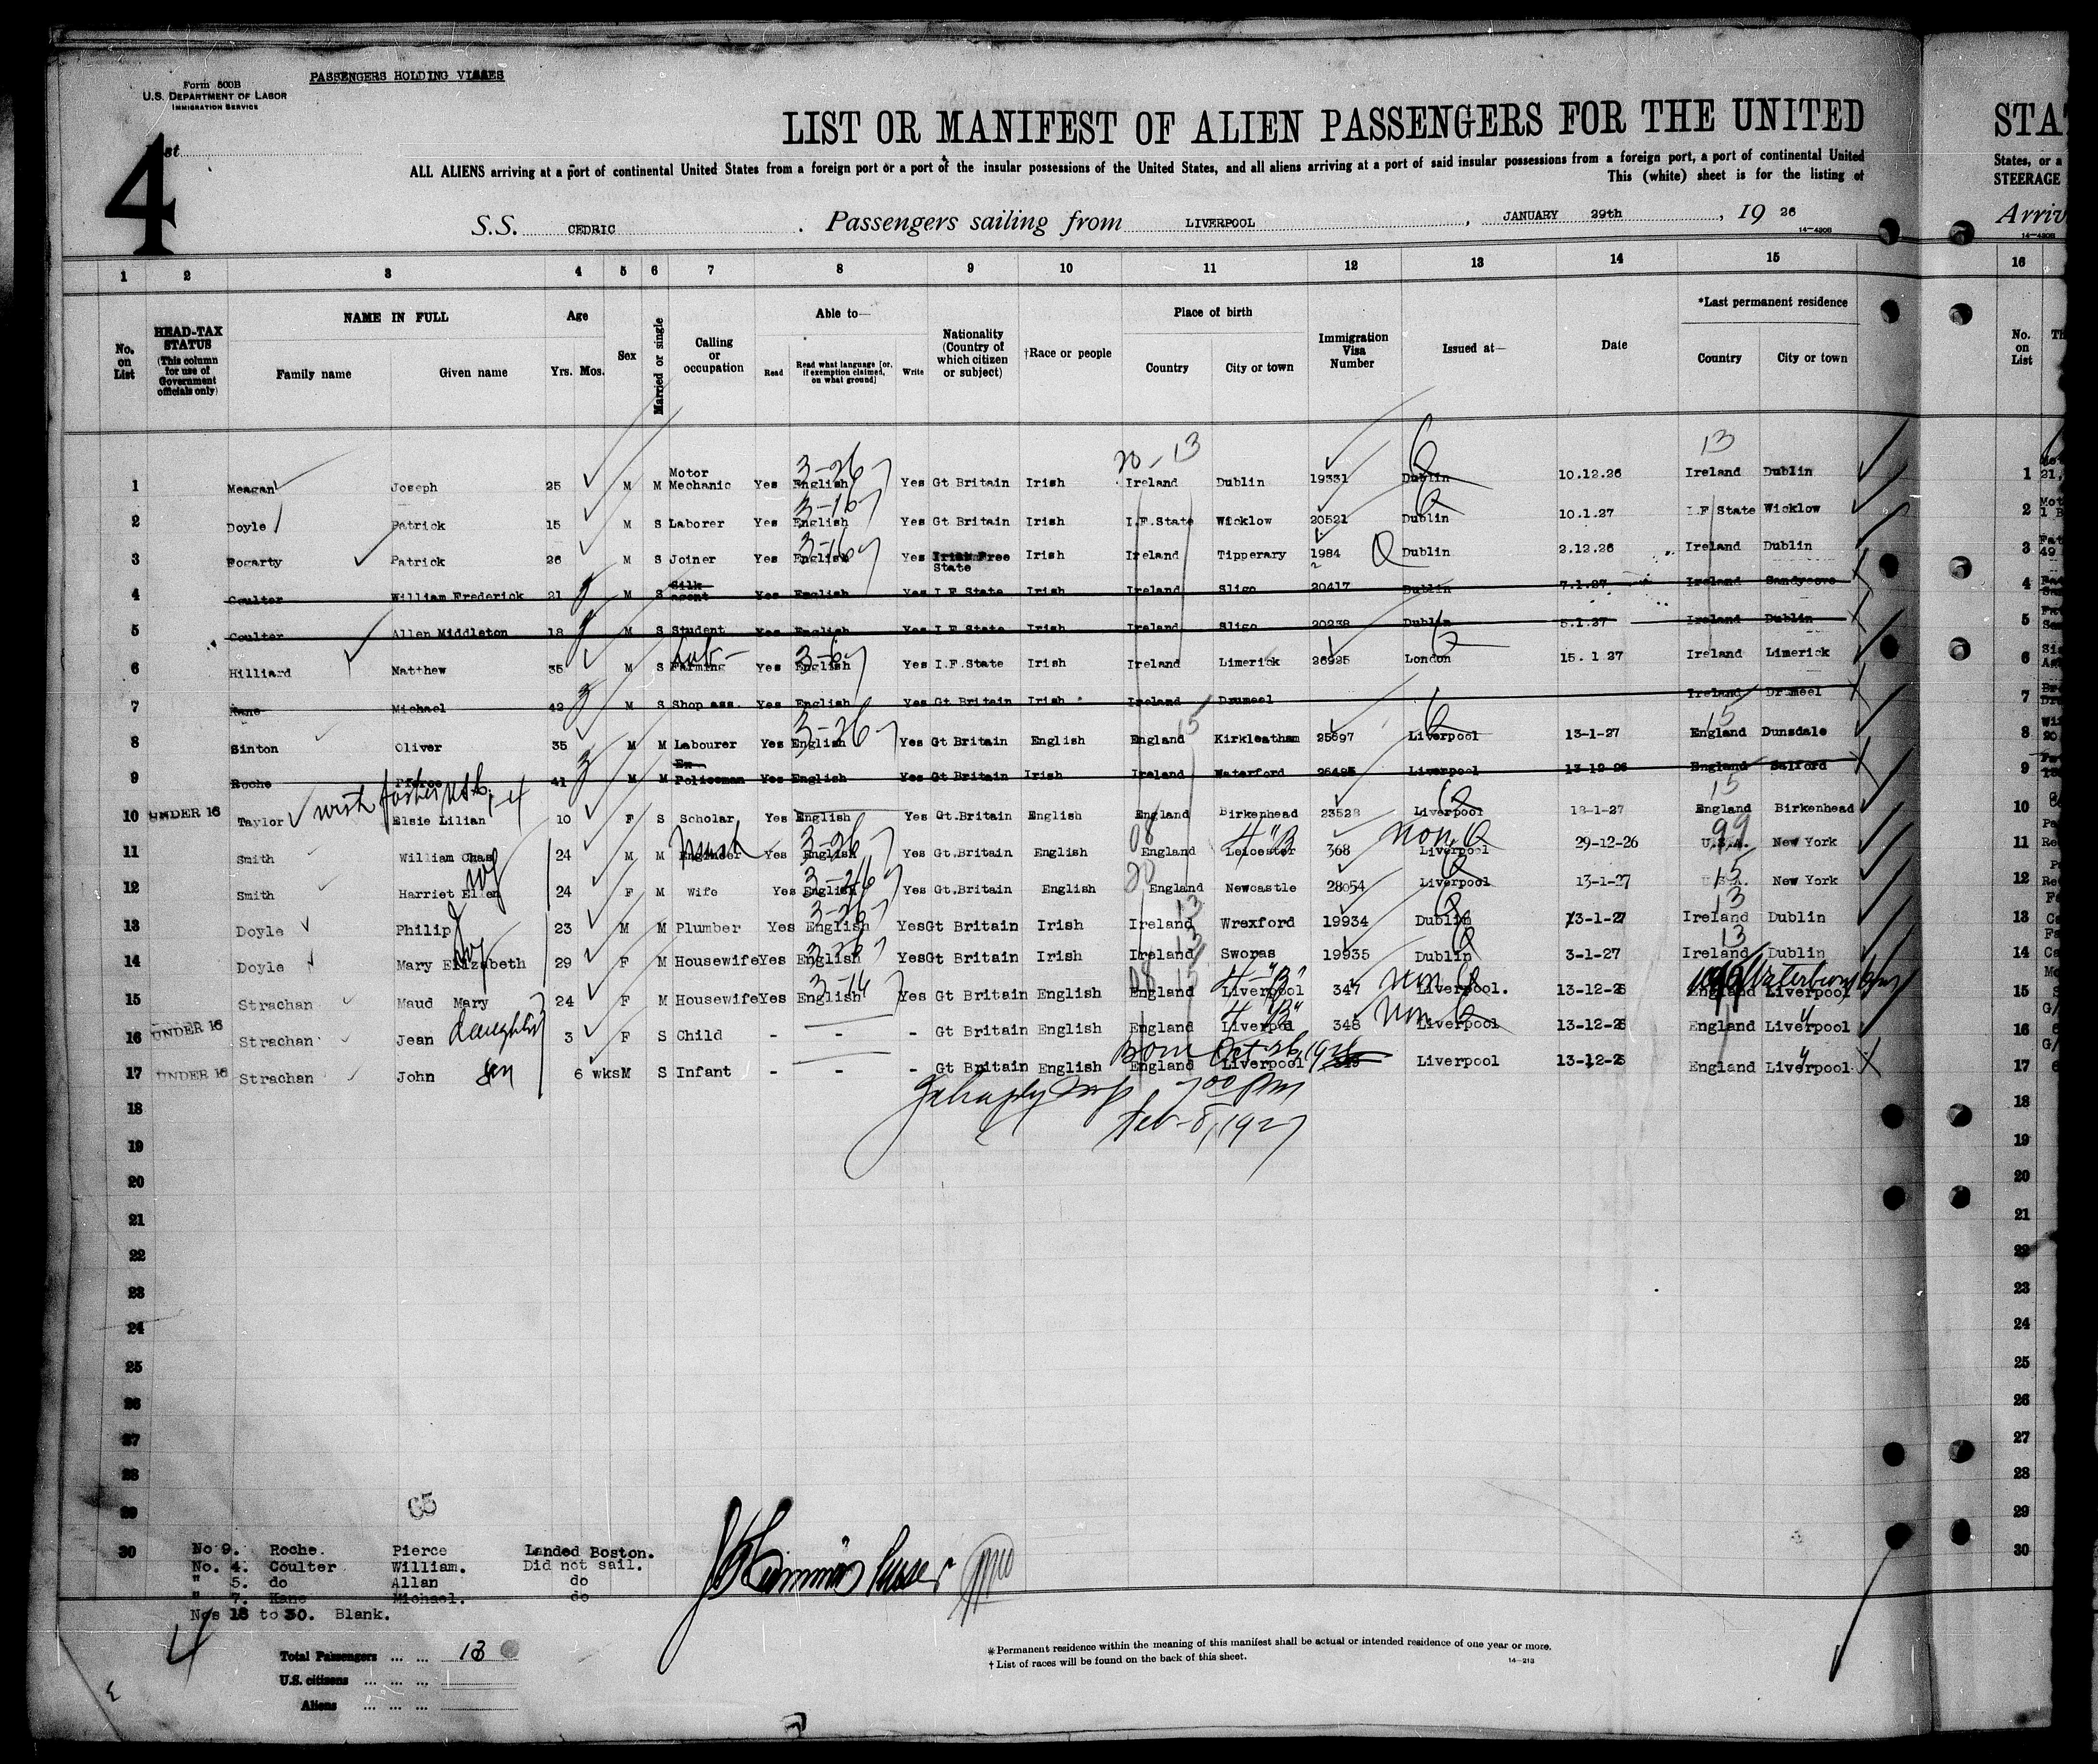 PASSENGERS HOLDING VISAES
Form 500B
U.S. DEPARTMENT OF LABOR
IMMIGRATION SERVICE
4
LIST OR MANIFEST OF ALIEN PASSENGERS FOR THE UNITED
ALL ALIENS arriving at a port of continental United States from a foreign port or a port of the insular possessions of the United States, and all aliens arriving at a port of said insular possessions from a foreign port, a port of continental United
This (white) sheet is for the listing of
S.S. CEDRIC . Passengers sailing from LIVERPOOL , JANUARY 29th , 19 26
14-420B
STAT
States, or a
STEERAGE
Arriv
1 2 3 4 5 6 7 8 9 10 11 12 13 14 15 16
No. on List
HEAD-TAX STATUS (This column for use of Government officials only)
NAME IN FULL
Family name Given name
Age
Yrs. Mos.
Sex
Married or single
Calling or occupation
Able to—
Read Read what language [or, if exemption claimed, on what ground] Write
Nationality (Country of which citizen or subject)
†Race or people
Place of birth
Country City or town
Immigration Visa Number
Issued at—
Date
*Last permanent residence
Country City or town
No. on List
20 - 13 13
1 Meagan Joseph 25 M M Motor Mechanic Yes English 3-26-7 Yes Gt Britain Irish Ireland Dublin 19331 Dublin 10.12.26 Ireland Dublin 1
2 Doyle Patrick 15 M S Laborer Yes English Yes Gt Britain Irish I.F.State Wicklow 20521 Dublin 10.1.27 I.F State Wicklow 2
3 Fogarty Patrick 26 M S Joiner Yes English Yes Irish Free State Irish Ireland Tipperary 1984 Q Dublin 2.12.26 Ireland Dublin 3
4 Coulter William Frederick 21 M S Silk agent Yes English Yes I F State Irish Ireland Sligo 20417 Dublin 7.1.27 Ireland Sandycove 4
5 Coulter Allen Middleton 18 M S Student Yes English Yes I F State Irish Ireland Sligo 20238 Dublin 5.1.27 Ireland Dublin 5
6 Hilliard Matthew 35 M S Farming Yes English Yes I.F.State Irish Ireland Limerick 26925 London 15.1.27 Ireland Limerick 6
7 Kane Michael 42 M S Shop ass. Yes English Yes Gt Britain Irish Ireland Drumeel Ireland Drumeel 7
8 Sinton Oliver 35 M M Labourer Yes English 3-26-7 Yes Gt Britain English England Kirkleatham 25697 Liverpool 13-1-27 England Dunsdale 8
9 Roche Pierce 41 M M Ex- Policeman Yes English Yes Gt Britain Irish Ireland Waterford 26485 Liverpool 13-12-26 England Salford 9
10 UNDER 16 Taylor Elsie Lilian 10 F S Scholar Yes English Yes Gt.Britain English England Birkenhead 23528 Liverpool 13-1-27 England Birkenhead 10
11 Smith William Chas 24 M M Engineer Yes English 3-26-7 Yes Gt.Britain English England Leicester 4 "B" 368 non Q Liverpool 29-12-26 U.S.A. 99 New York 11
12 Smith Harriet Ellen 24 F M Wife Yes English Yes Gt.Britain English England Newcastle 28054 Liverpool 13-1-27 U.S.A. New York 12
13 Doyle Philip 23 M M Plumber Yes English Yes Gt Britain Irish Ireland Wrexford 19934 Dublin 13-1-27 Ireland Dublin 13
14 Doyle Mary Elizabeth 29 F M Housewife Yes English Yes Gt Britain Irish Ireland Sworas 19935 Dublin 3-1-27 Ireland Dublin 14
15 Strachan Maud Mary 24 F M Housewife Yes English Yes Gt Britain English England Liverpool 4 "B" 347 non Q Liverpool. 13-12-26 England Liverpool Waterbury 15
16 UNDER 16 Strachan Jean daughter 3 F S Child - - - Gt Britain English England Liverpool 4 "B" 348 non Q Liverpool 13-12-26 England Liverpool 16
17 UNDER 16 Strachan John son 6 wks M S Infant - - - Gt Britain English Born Oct 26, 1926 England Liverpool 349 Liverpool 13-12-26 England Liverpool 17
18 7 00 PM 18
19 Feb-8, 1927 19
20 20
21 21
22 22
23 23
24 24
25 25
26 26
27 27
28 28
29 65 29
30 30
No 9. Roche. Pierce Landed Boston.
No. 4. Coulter William. Did not sail.
" 5. do Allan do
" 7. Kane Michael. do
Nos 18 to 30. Blank.
Total Passengers ... ... 13
U.S. citizens ... ... ...
Aliens ... ... ...
*Permanent residence within the meaning of this manifest shall be actual or intended residence of one year or more.
†List of races will be found on the back of this sheet.
14-213